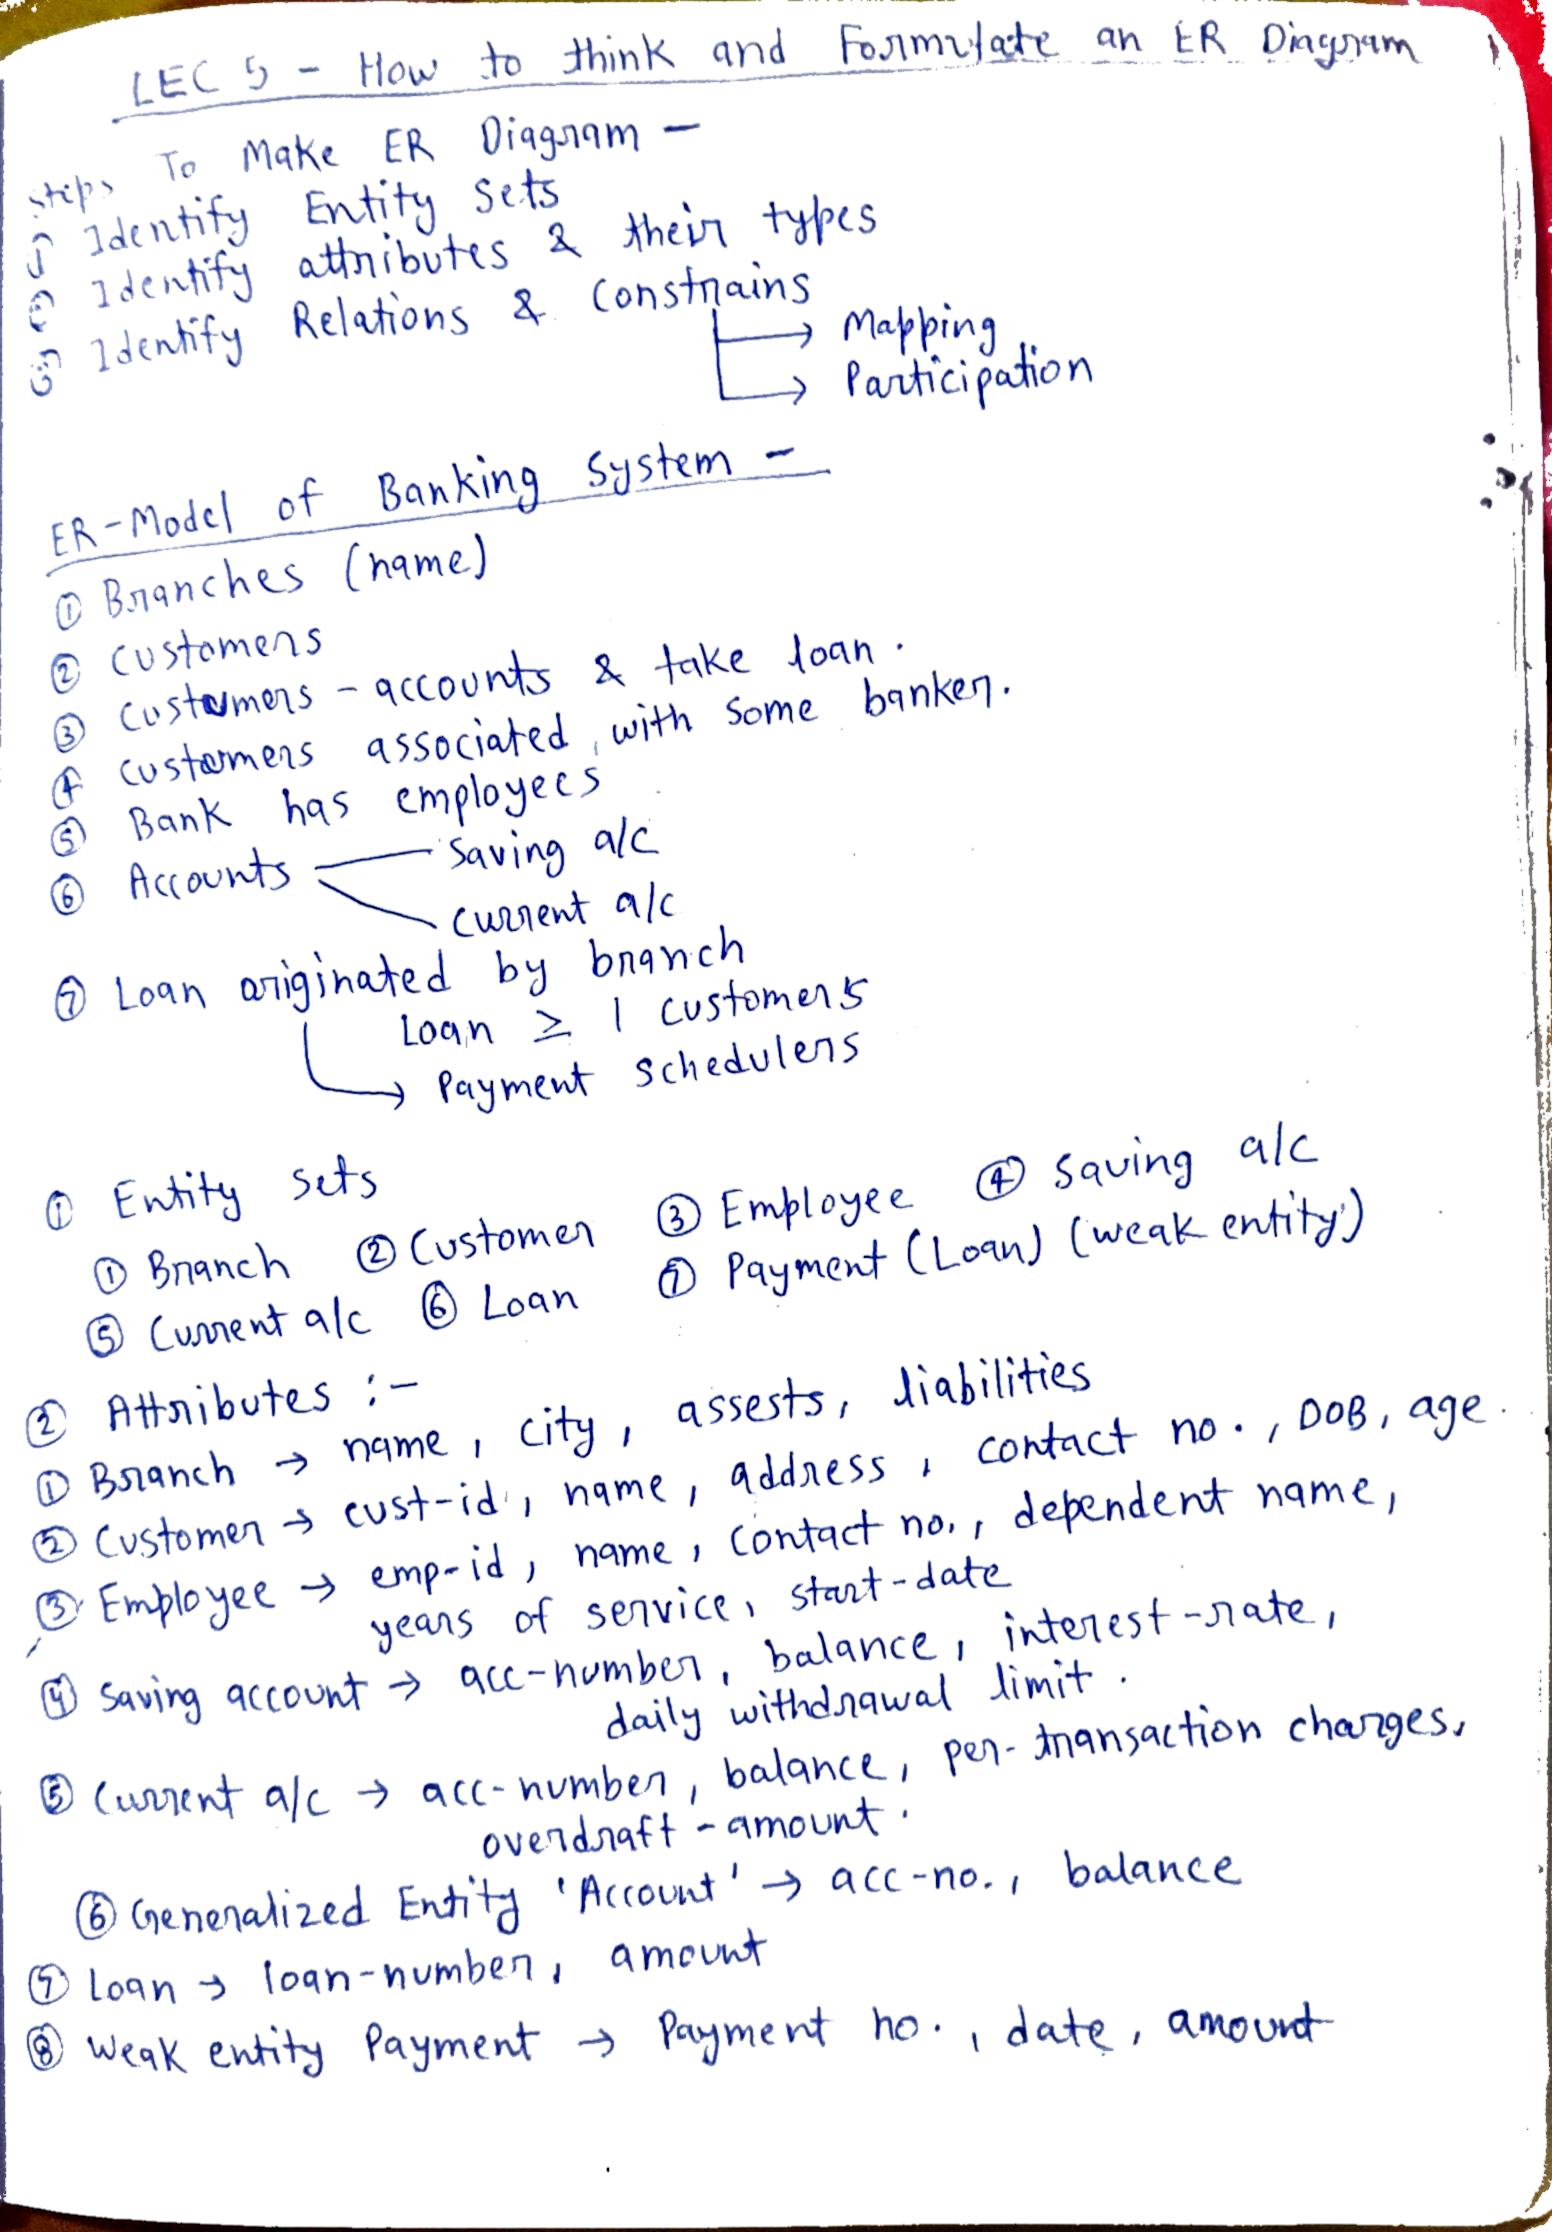 LEC 5 - How to think and Formulate an ER Diagram
Steps To Make ER Diagram -
① Identify Entity Sets
② Identify attributes & their types
③ Identify Relations & Constrains
→ Mapping
→ Participation
ER-Model of Banking System -
① Branches (name)
② Customers
③ Customers - accounts & take loan.
④ Customers associated with some banker.
⑤ Bank has employees
⑥ Accounts — Saving a/c
Current a/c
⑦ Loan originated by branch
Loan ≥ 1 customers
→ Payment schedulers
① Entity sets
① Branch ② Customer ③ Employee ④ Saving a/c
⑤ Current a/c ⑥ Loan ⑦ Payment (Loan) (weak entity)
② Attributes :-
① Branch → name, city, assests, liabilities
② Customer → cust-id, name, address, contact no., DOB, age.
③ Employee → emp-id, name, contact no., dependent name,
years of service, start-date
④ Saving account → acc-number, balance, interest-rate,
daily withdrawal limit.
⑤ Current a/c → acc-number, balance, per-transaction charges,
overdraft-amount.
⑥ Generalized Entity 'Account' → acc-no., balance
⑦ Loan → loan-number, amount
⑧ Weak entity Payment → Payment no., date, amount